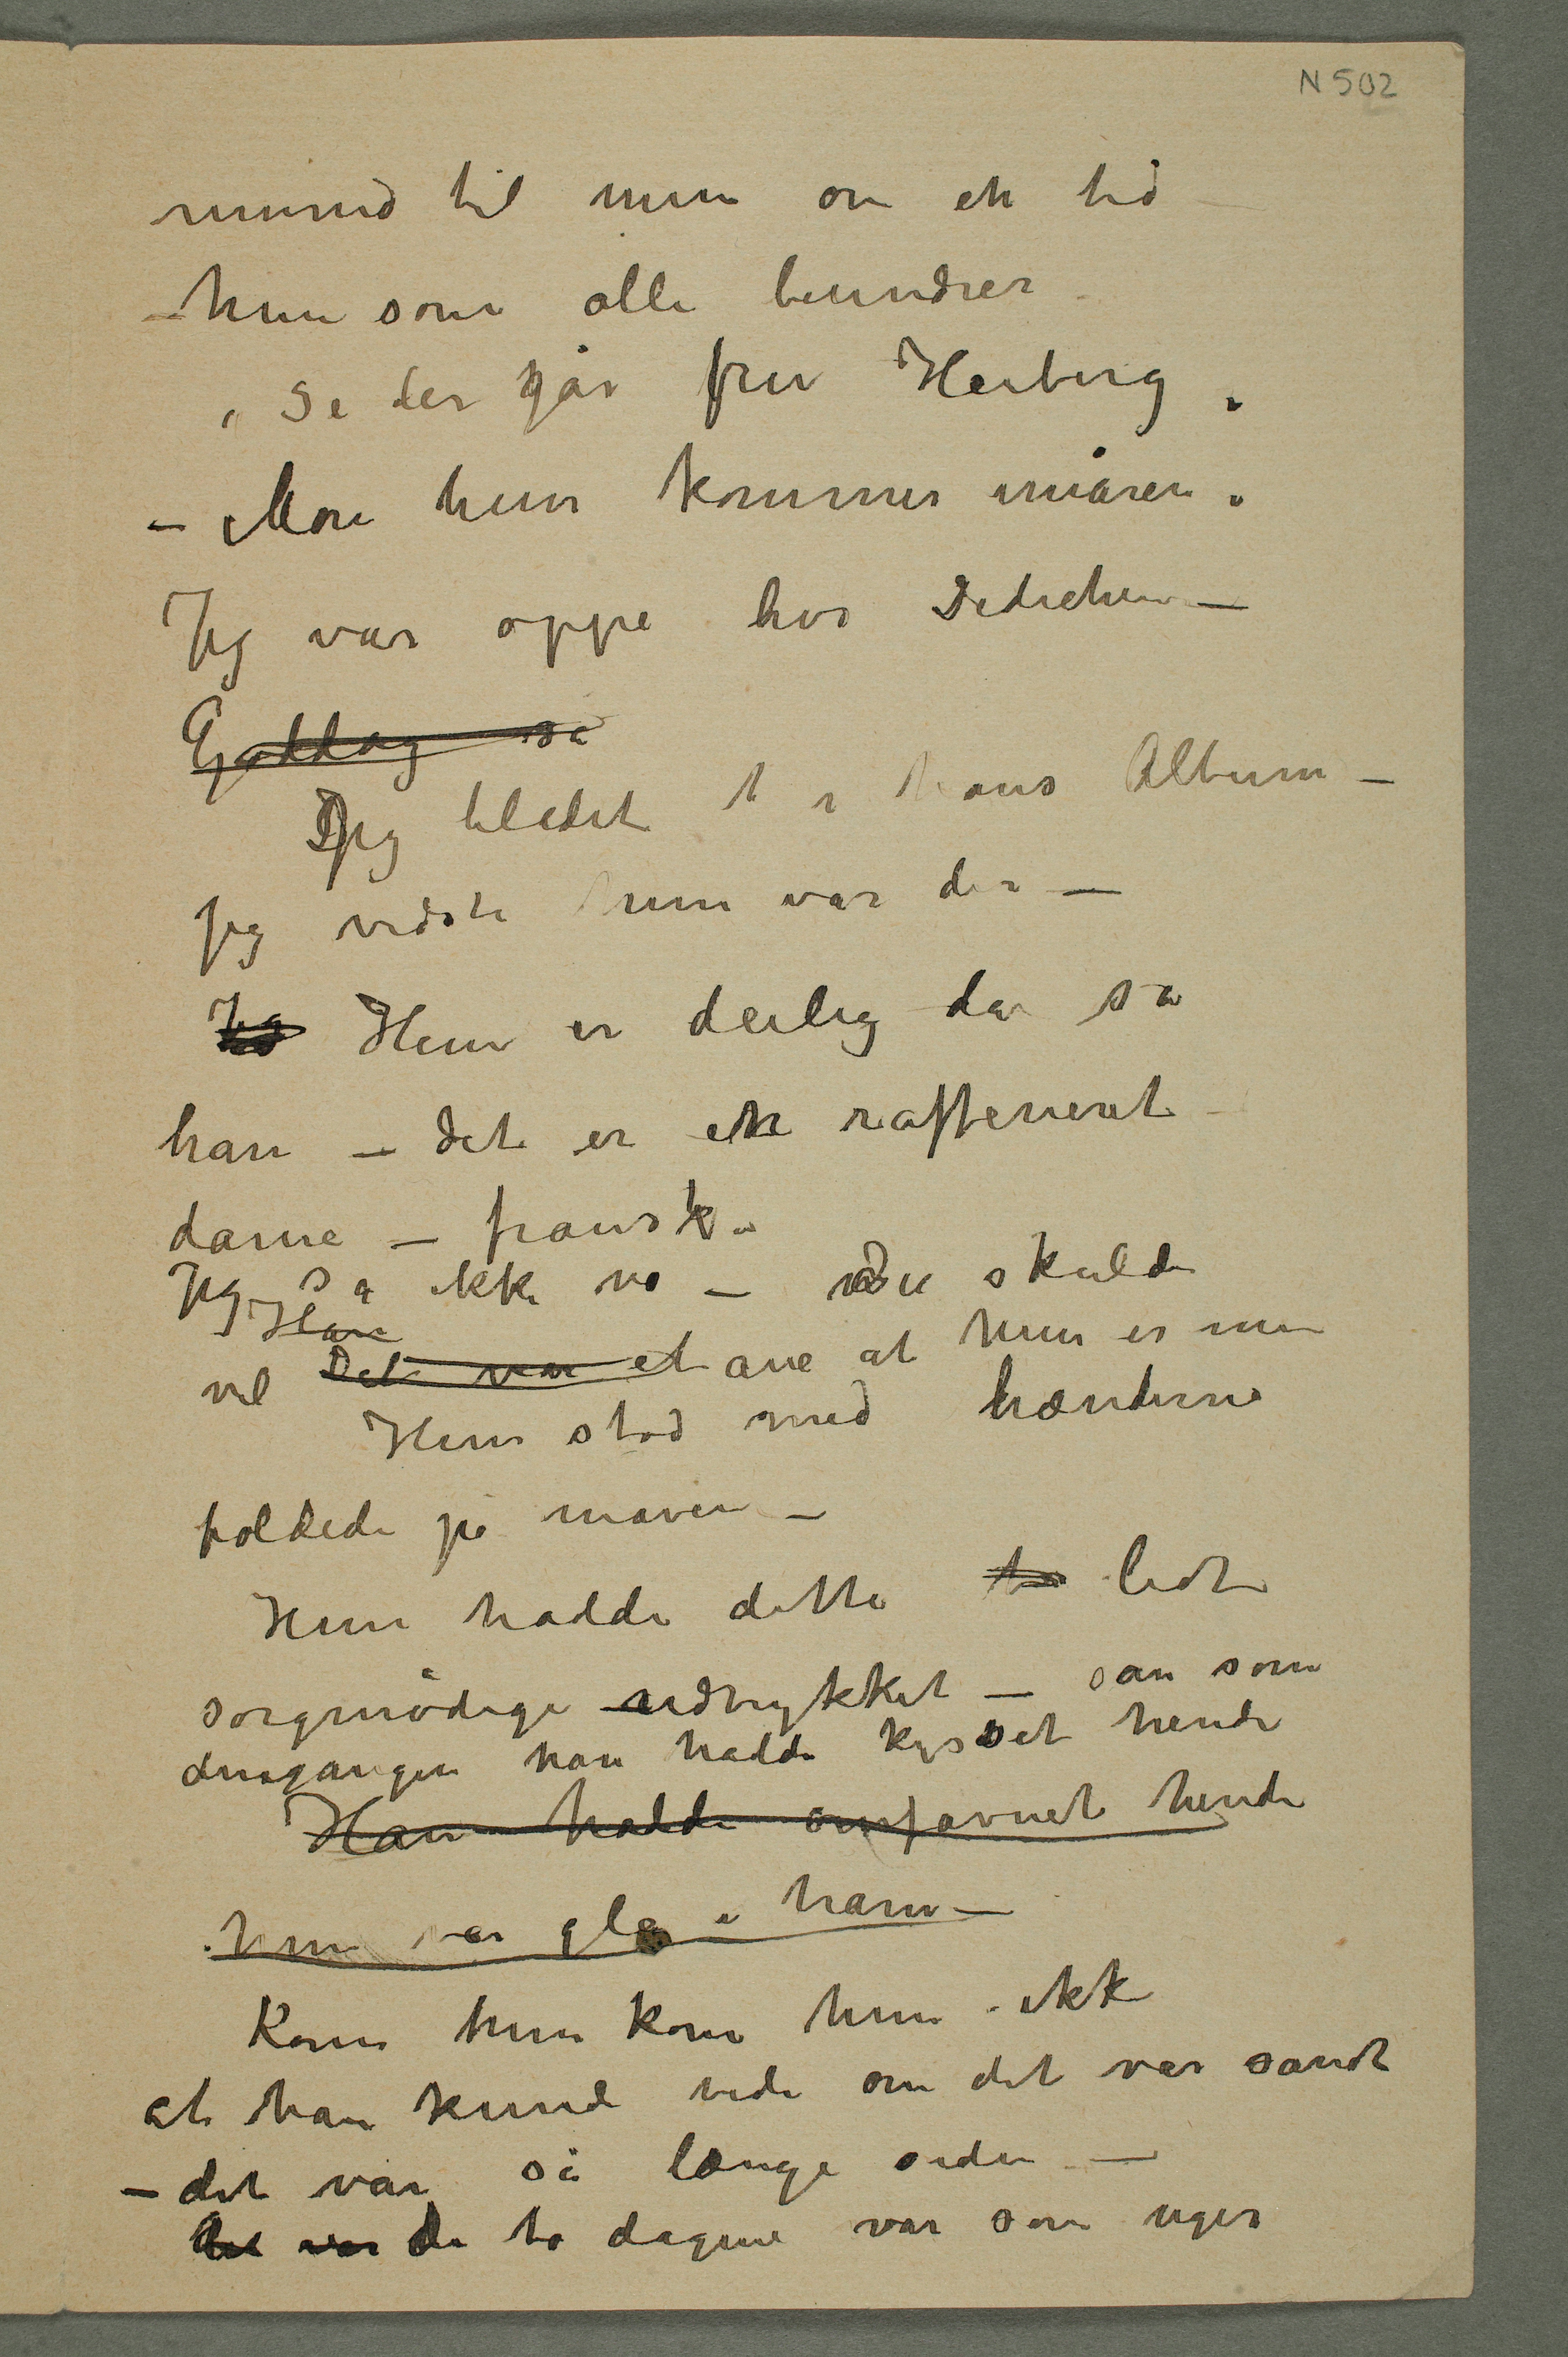 N 502
mund til min om en tid –
– hun som alle beundrer.
„Se der går fru Heiberg„
– Mon hun kommer imåren.
Jeg var oppe hos Dedichen –
Goddag sa
Jeg bladet i hans Album –
Jeg vidste hun var der –
Jeg Hun er deilig da sa
han – det er en raffineret
dame – fransk.
Jeg sa ikke no – Du skulde
Han
vel Det var et ane at hun er min
Hun stod med hænderne
foldede på maven –
Hun hadde dette lidt
sørgmodige udtrykket – san som
dengangen han hadde kysset hende
Han hadde omfavnet hende
hun var gla i ham –
Kom hun kom hun ikke
at han kunde vide om det var sandt
– det var så længe siden –
Det var de to dagene var som uger